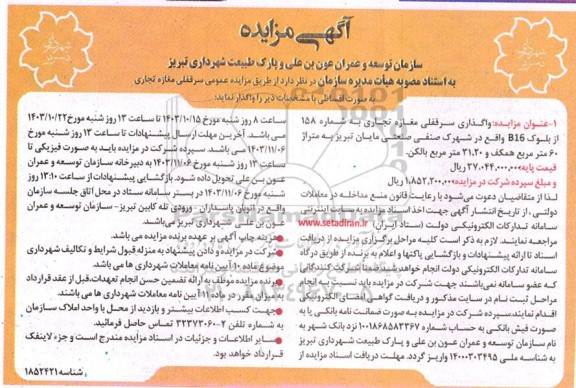 آگهی مزایده
سازمان توسعه و عمران عون بن علی و پارک طبیعت شهرداری تبریز
به استناد مصوبه هیأت مدیره سازمان در نظر دارد از طریق مزایده عمومی سرقفلی مغازه تجاری
به صورت اقساطی با مشخصات ذیر را واگذار نماید:
۱-عنوان مزایده: واگذاری سرقفلی مغازه تجاری به شماره ۱۵۸
از بلوک B16 واقع در شهرک صنفی صنعتی مایان تبریز به متراژ
۶۰ متر مربع همکف و ۳۱.۲۰ متر مربع بالکن.
قیمت پایه ۳۷،۰۴۴،۰۰۰،۰۰۰ ریال
و مبلغ سپرده شرکت در مزایده ۱،۸۵۲،۲۰۰،۰۰۰ ریال.
لذا از متقاضیان دعوت می‌شود با رعایت قانون منع مداخله در معاملات
دولتی، از تاریخ انتشار آگهی جهت اخذ اسناد مزایده به سایت اینترنتی
سامانه تدارکات الکترونیکی دولت (ستاد ایران) www.setadiran.ir
مراجعه نمایند. لازم به ذکر است کلیه مراحل برگزاری مزایده از دریافت
اسناد تا ارائه پیشنهادات و بازگشایی پاکتها و اعلام به برنده از طریق درگاه
سامانه تدارکات الکترونیکی دولت انجام خواهد شد. شرکت کنندگانی
که عضو سامانه نمی‌باشند جهت شرکت در مزایده باید نسبت به انجام
مراحل ثبت نام در سایت مذکور و دریافت گواهی امضای الکترونیکی
اقدام نمایند. سپرده شرکت در مزایده به صورت ضمانت نامه بانکی یا به
صورت فیش بانکی به حساب شماره ۱۰۰۱۸۶۸۵۸۳۳۶۷ نزد بانک شهر به
نام سازمان توسعه و عمران عون بن علی و پارک طبیعت شهرداری تبریز
به شناسه ملی ۱۴۰۰۰۳۰۳۴۹۵ واریز گردد. مهلت دریافت اسناد مزایده از
ساعت ۸ روز شنبه مورخ ۱۴۰۳/۱۰/۱۵ تا ساعت ۱۳ روز شنبه مورخ ۱۴۰۳/۱۰/۲۲
می باشد. آخرین مهلت ارسال پیشنهادات تا ساعت ۱۳ روز شنبه مورخ
۱۴۰۳/۱۱/۰۶ می باشد. سپرده شرکت در مزایده باید به صورت فیزیکی تا
ساعت ۱۳ روز شنبه مورخ ۱۴۰۳/۱۱/۰۶ به دبیرخانه سازمان توسعه و عمران
عون بن علی تحویل داده شود. بازگشایی پیشنهادات از ساعت ۱۳:۱۰ روز
شنبه مورخ ۱۴۰۳/۱۱/۰۶ در بستر سامانه ستاد در محل اتاق جلسه سازمان
واقع در اتوبان پاسداران - ورودی تله کابین تبریز- سازمان توسعه و عمران
عون بن علی شهرداری تبریز می‌باشد.
هزینه چاپ آگهی بر عهده برنده مزایده می باشد.
شرکت در مزایده و دادن پیشنهاد به منزله قبول شرایط و تکالیف شهرداری
موضوع ماده ۱۰ آیین نامه معاملات شهرداری ها می باشد.
برنده مزایده موظف به ارائه تضمین حسن انجام تعهدات، قبل از عقد قرارداد
به میزان مقرر در ماده ۱۱ آیین نامه معاملات شهرداری ها می باشند.
جهت کسب اطلاعات بیشتر و بازدید از محل با واحد املاک سازمان
به شماره تلفن ۲-۳۳۳۷۳۰۶۰ تماس حاصل فرمائید.
سایر اطلاعات و جزئیات در اسناد مزایده مندرج است و جزء لاینفک
قرارداد خواهد بود.
شناسه ۱۸۵۲۴۲۱